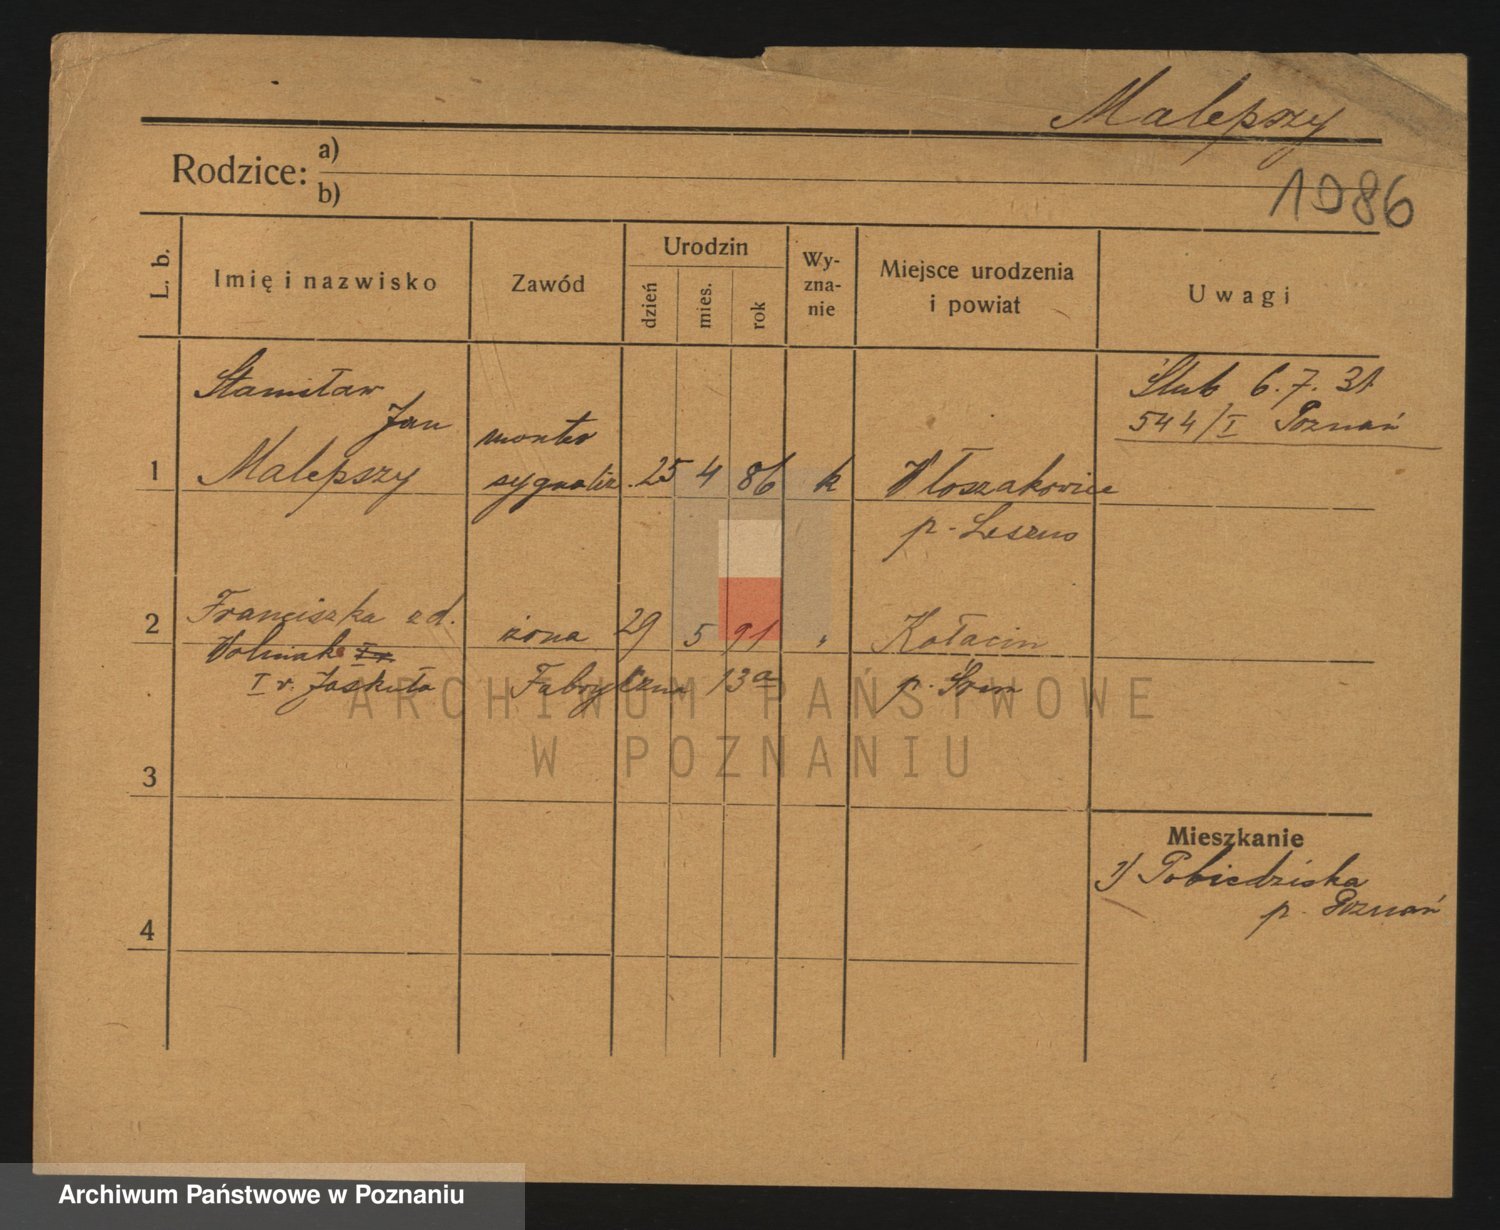 Malepszy
Rodzice: a)
b)
1986
L. b.
Imię i nazwisko
Zawód
Urodzin
dzień
mies.
rok
Wy-
zna-
nie
Miejsce urodzenia
i powiat
Uwagi
Stanisław
Jan
Malepszy
monter
sygnaliz.
1
25 4 86 k
Włoszakowice
p. Leszno
Ślub 6.7.31
544/I Poznań
2
Franciszka zd.
Wolniak
I v. Jaskuła
żona
29 5 91 "
Fabryczna 13a
Kołacin
p. Śrem
3
4
Mieszkanie
1) Pobiedziska
p. Poznań
ARCHIWUM PAŃSTWOWE
W POZNANIU
Archiwum Państwowe w Poznaniu